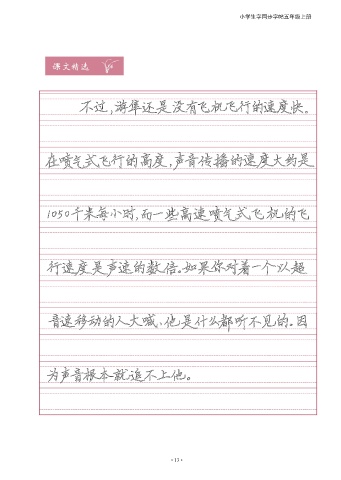 小学生字同步字帖五年级上册
课文精选
不过,游隼还是没有飞机飞行的速度快。
在喷气式飞行的高度,声音传播的速度大约是
1050千米每小时,而一些高速喷气式飞机的飞
行速度是声速的数倍。如果你对着一个以超
音速移动的人大喊,他是什么都听不见的。因
为声音根本就追不上他。
·13·